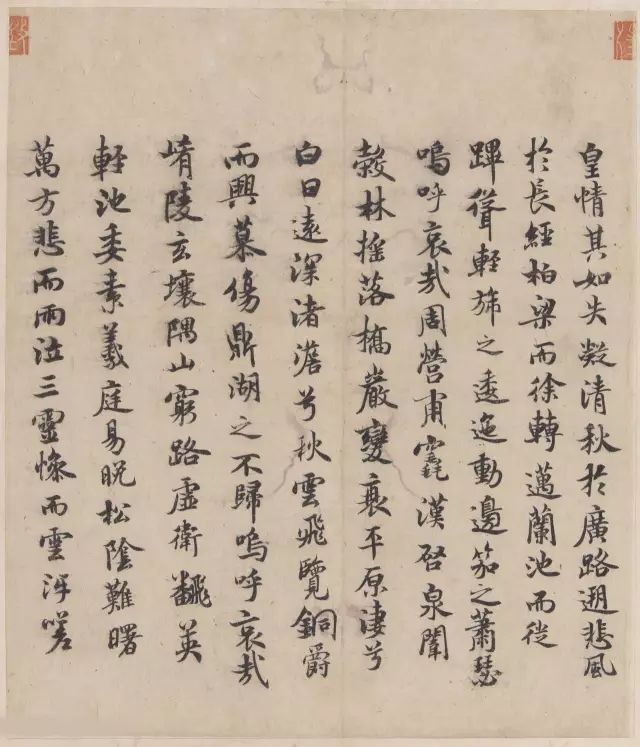 皇情其如失凝清秋於廣路遡悲風
於長經柏梁而徐轉邁蘭池而從
蹕聳輕旆之逶迤動邊笳之蕭瑟
嗚呼哀哉周營甫竁漢啓泉闈
穀林搖落橋巖變衰平原淒兮
白日遠深渚澹兮秋雲飛覽銅爵
而興慕傷鼎湖之不歸嗚呼哀哉
陵玄壤隅山窮路虛衛翻英
輕池委素羲庭易晚松陰難曙
萬方悲而雨泣三靈慘而雲沍嗟